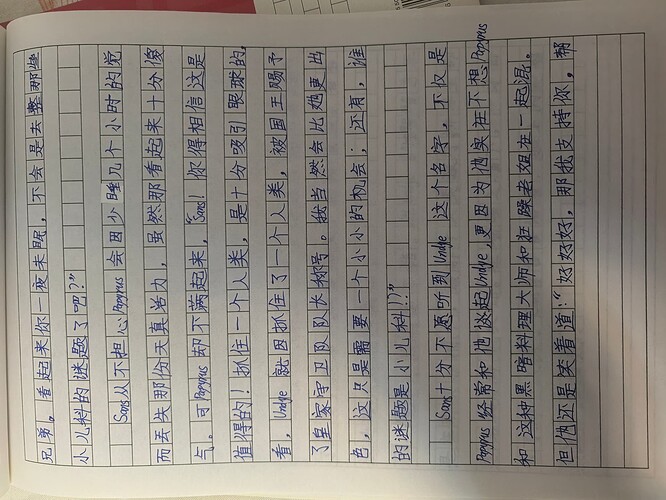 兄弟，看起来你一夜未眠，不会是去整那些
小儿科的谜题了吧?”
Sans从不担心Papyrus会因少睡几个小时的觉
而丢失那份天真活力，虽然那看起来十分傻
气。可Papyrus却不满起来，“Sans！你得相信这是
值得的！抓住一个人类，是十分吸引眼球的，
看，Undye就因抓住了一个人类，被国王赐予
了皇家守卫队队长称号。我当然会比她更出
色，这只是需要一个小小的机会；还有，谁
的谜题是小儿科!?”
Sans十分不愿听到Undye这个名字，不仅是
Papyrus经常和他谈起Undye，更因为他实在不想Papyrus
和这种黑暗料理大师和狂躁老姐在一起混。
但他还是笑着道：“好好好，那我支持你，帮